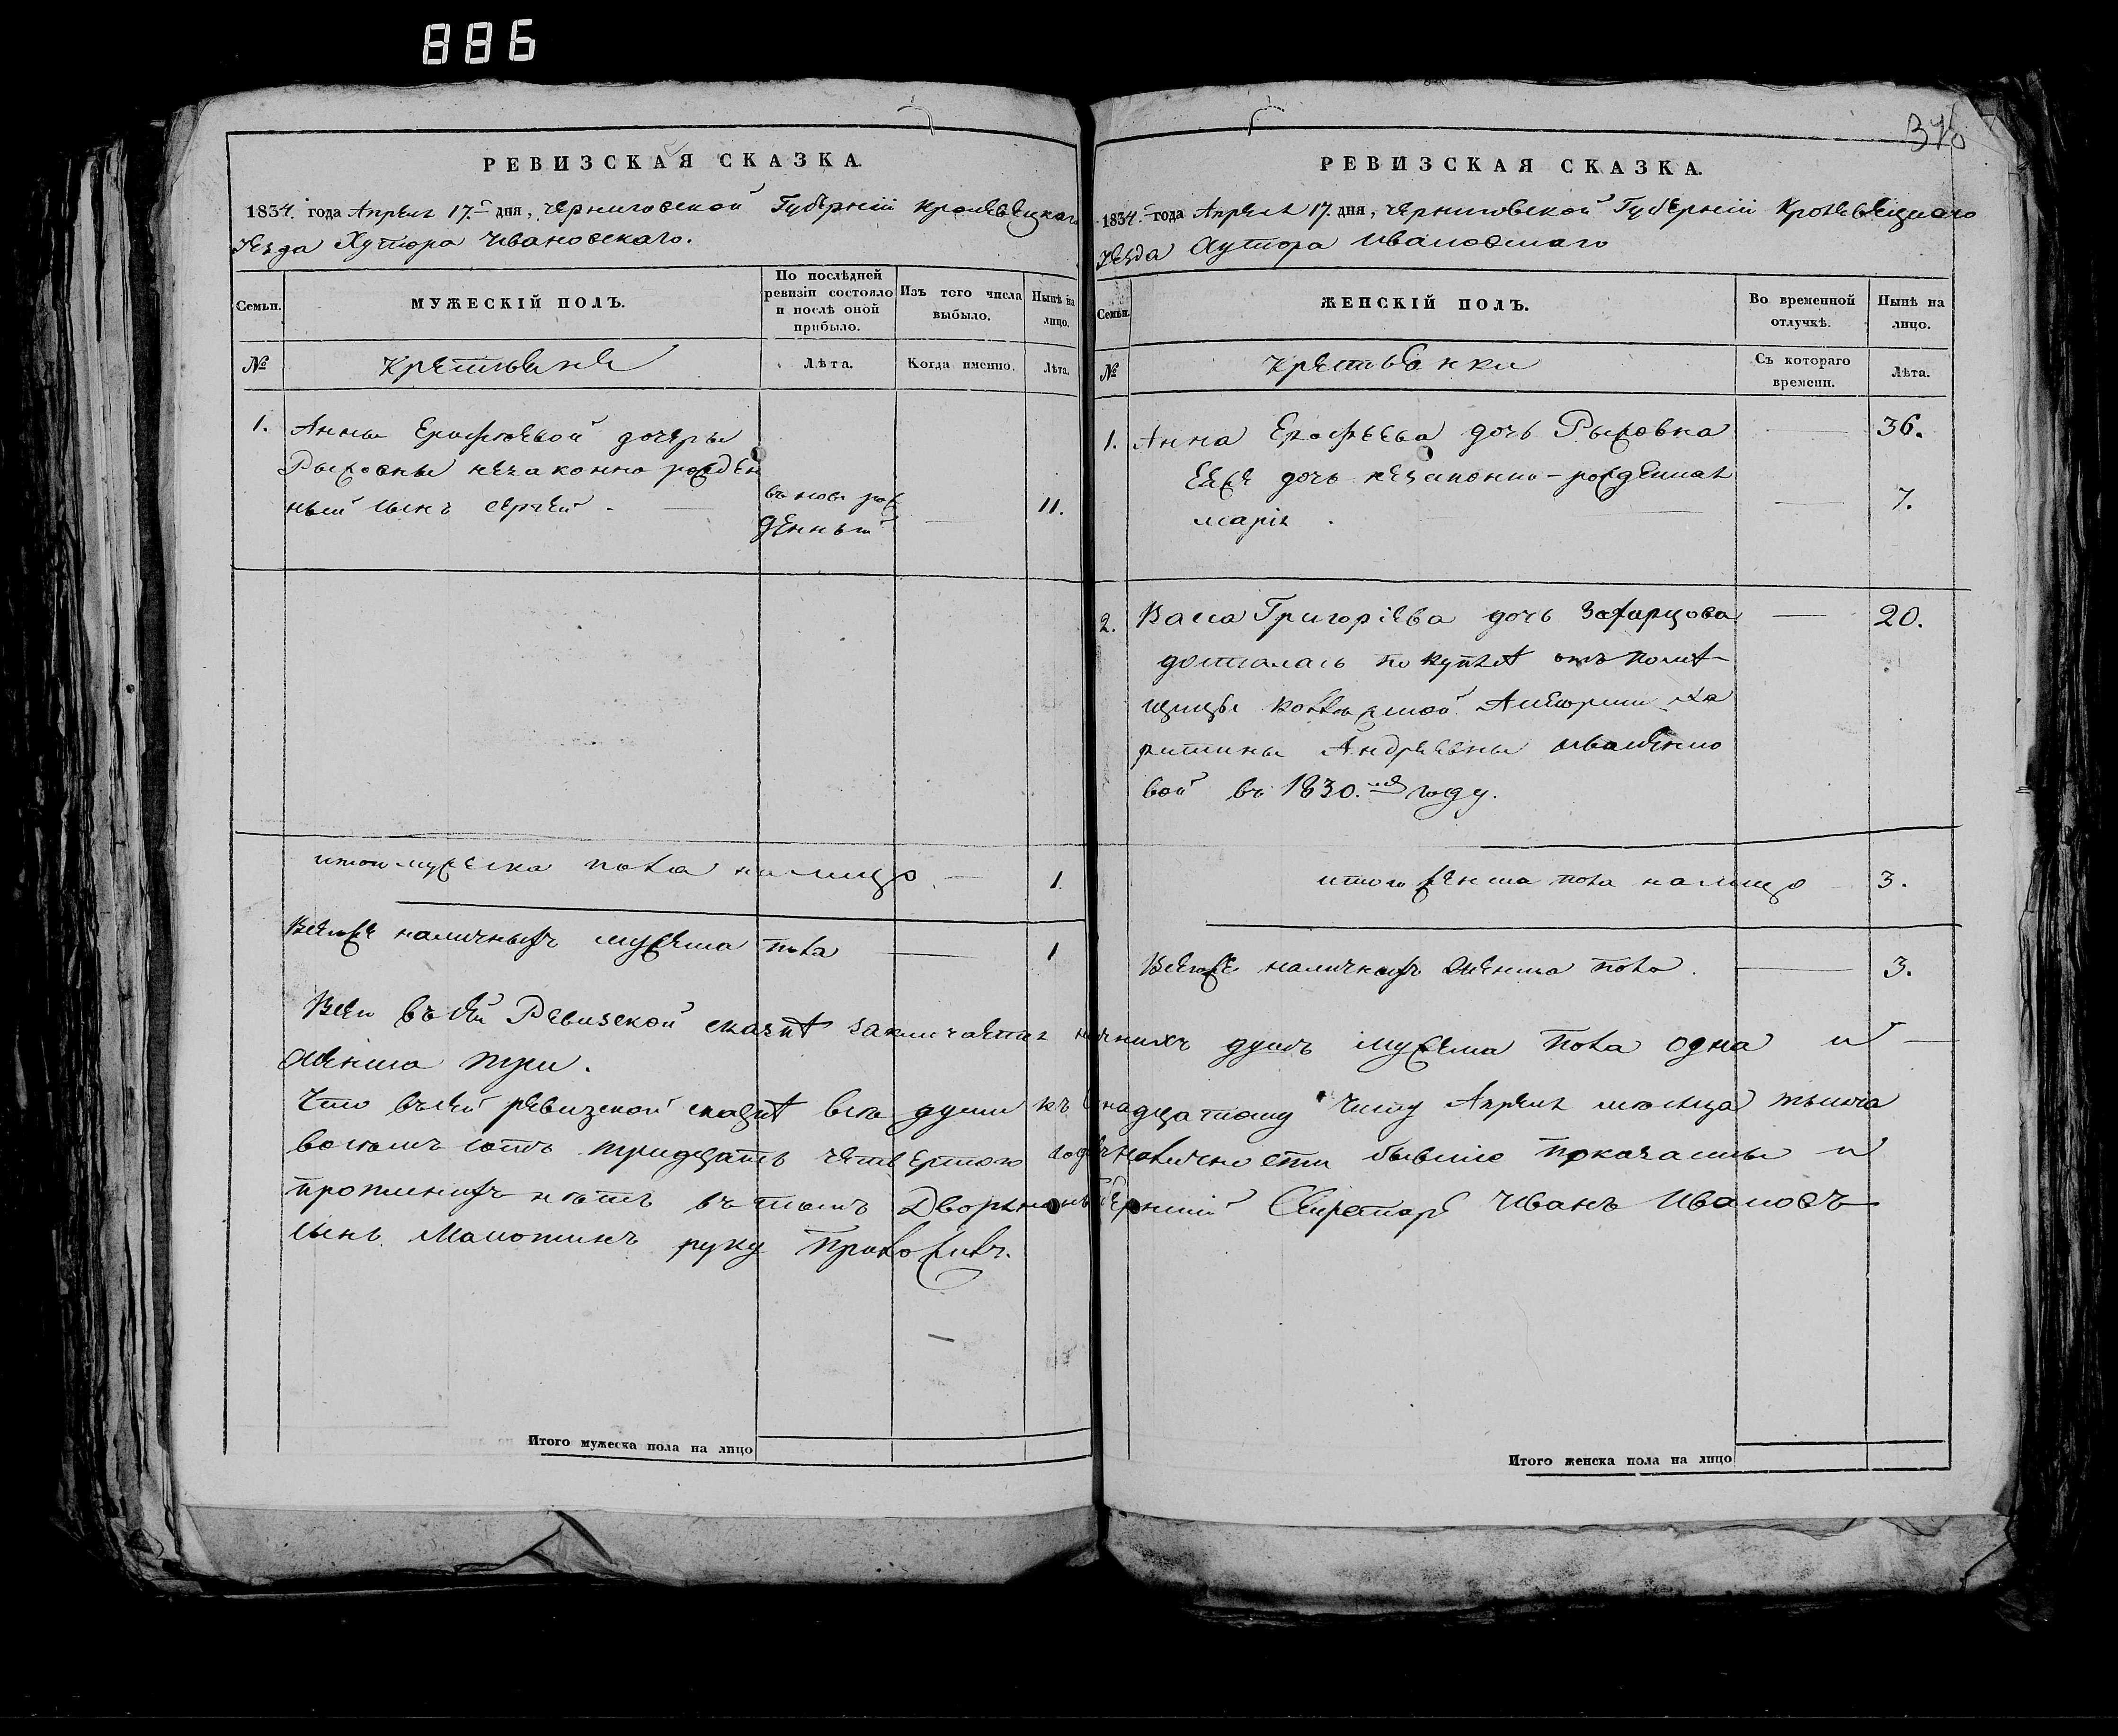 886
РЕВИЗСКАЯ СКАЗКА.
1834. года Апреля 17.го дня, Черниговской Губерніи Кролевецкаго
уезда Хутора Ивановскаго.
Семьи.
МУЖЕСКІЙ ПОЛЪ.
По послѣдней ревизіи состояло и послѣ оной прибыло.
Изъ того числа выбыло.
Нынѣ на лицо.
№
Крестьяне
Лѣта.
Когда именно.
Лѣта.
1. Анны Ерофѣевой дочери
Рыжовны незаконно рожден
ный сынъ Сергей. вновь рож 11.
денный
итого мужеска пола на лицо 1.
Всего же наличныхъ мужеска пола 1
РЕВИЗСКАЯ СКАЗКА.
1834. года Апреля 17. дня, Черниговской Губерніи Кролевецкаго
уезда Хутора Ивановскаго
Семьи.
ЖЕНСКІЙ ПОЛЪ.
Во временной отлучкѣ.
Нынѣ на лицо.
№
Крестьянки
Съ котораго времени.
Лѣта.
1. Анна Ерофѣева дочь Рыжовна 36.
Ея же дочь незаконно-рожденная 7.
Марія.
2. Васса Григоріева дочь 20.
досталась по купле отъ помѣ-
щицы Ха
ритины Андреевны
вой въ 1830.мъ году.
итого женска пола на лицо 3.
Всего же наличныхъ женска пола. 3.
Всего въ сей Ревизской сказкѣ заключается душъ мужеска пола одна и
женска три.
Что въ сей ревизской сказкѣ все души къ числу Апреля месяца тысяча
восемъ сотъ тридцать четвертого года наличности бывшіе показаны и
прописныхъ нетъ въ томъ Секретарь Иванъ Ивановъ
сынъ руку приложилъ.
Итого мужеска пола на лицо
Итого женска пола на лицо